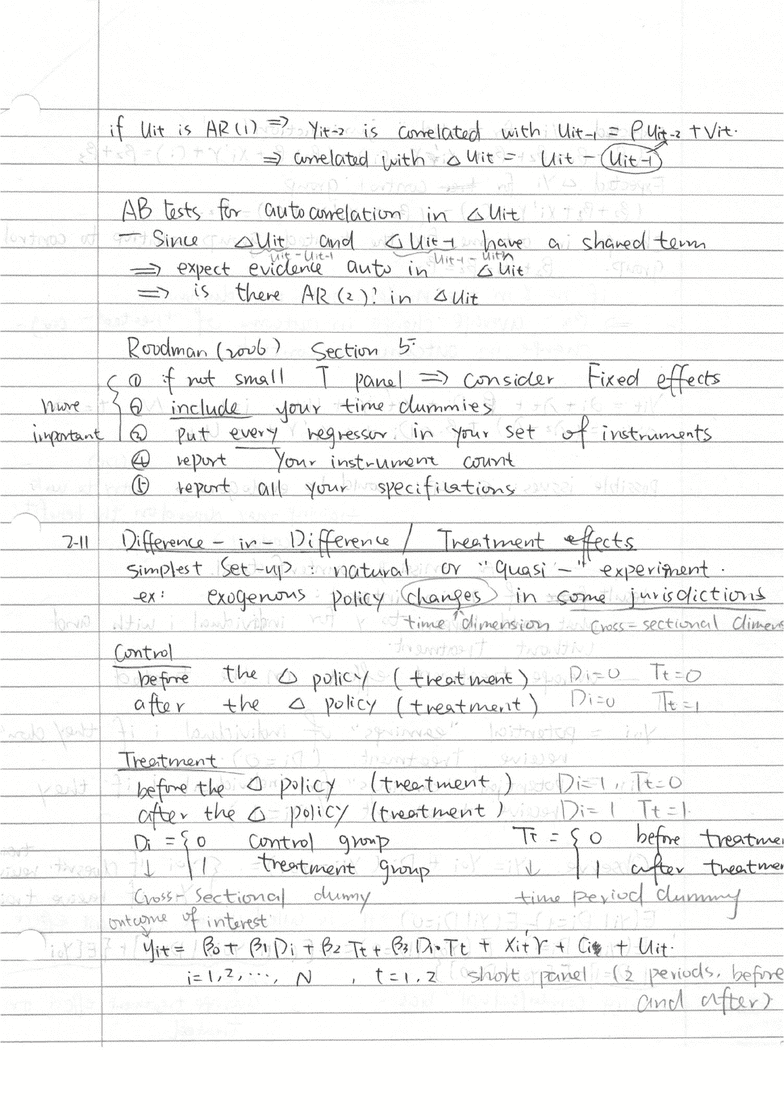 if Uit is AR(1) ⇒ Yit-2 is correlated with Uit-1 = ρUit-2 + Vit.
⇒ correlated with △Uit = Uit - Uit-1
AB tests for autocorrelation in △Uit
- Since △Uit and △Uit-1 have a shared term
Uit-Uit-1 Uit-1-Uith
⇒ expect evidence auto in △Uit
⇒ is there AR(2)? in △Uit
Roodman (2006) Section 5
① if not small T panel ⇒ consider Fixed effects
more ② include your time dummies
important ③ put every regressor in your set of instruments
④ report your instrument count
⑤ report all your specifications
2-11 Difference-in-Difference / Treatment effects
simplest set-up: natural or "quasi-" experiment.
ex: exogenous policy changes in some jurisdictions
time dimension cross-sectional dimens
Control
before the △ policy (treatment) Di=0 Tt=0
after the △ policy (treatment) Di=0 Tt=1
Treatment
before the △ policy (treatment) Di=1, Tt=0
after the △ policy (treatment) Di=1 Tt=1.
Di = { 0 control group Tt = { 0 before treatme
↓ 1 treatment group ↓ 1 after treatme
Cross-Sectional dummy time period dummy
outcome of interest
Yit = β0 + β1 Di + β2 Tt + β3 Di·Tt + Xit'γ + Ci + Uit.
i=1,2,···, N , t=1,2 short panel (2 periods, before
and after)